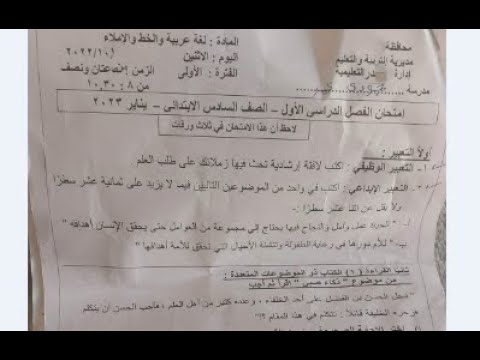 محافظة
مديرية التربية والتعليم
إدارة التعليمية
مدرسة
المادة : لغة عربية والخط والإملاء
اليوم : الاثنين ٢٠٢٢/١٠/
الفترة : الأولى الزمن : ساعتان ونصف
من ٨ : ١٠,٣٠
امتحان الفصل الدراسى الأول – الصف السادس الابتدائى – يناير ٢٠٢٣
لاحظ أن هذا الامتحان في ثلاث ورقات
أولاً التعبير :
١- التعبير الوظيفي : اكتب لافتة إرشادية تحث فيها زملائك على طلب العلم .
٢- التعبير الإبداعي : اكتب في واحد من الموضوعين التاليين فيما لا يزيد على ثمانية عشر سطرًا
ولا يقل عن اثنا عشر سطرًا :
أ- " الحياة عمل وأمل والنجاح فيها يحتاج إلي مجموعة من العوامل حتى يحقق الإنسان أهدافه "
ب- " للأم دورها في رعاية الطفولة وتنشئة الأجيال التي تحقق للأمة أهدافها "
ثانيا القراءة : (١) الكتاب ذو الموضوعات المتعددة :
من موضوع " ذكاء صبي " اقرأ ثم أجب
" دخل الحسن بن الفضل على أحد الخلفاء ، وعنده كثير من أهل العلم ، فأحب الحسن أن يتكلم
فزجره الخليفة قائلاً : تتكلم في هذا المقام ؟! "